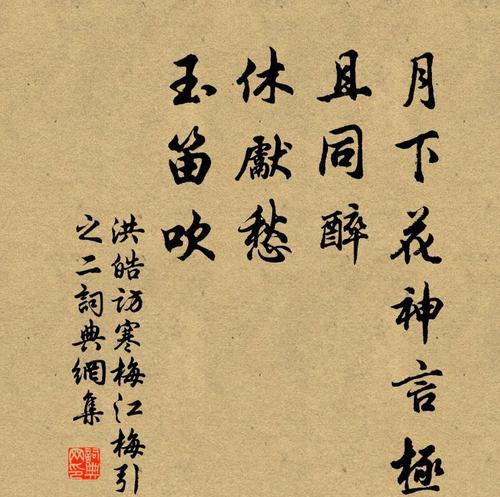 月下花神言極
且同醉
休獻愁
玉笛吹
洪皓訪寒梅江梅引
之二詞典網集
詞典網印